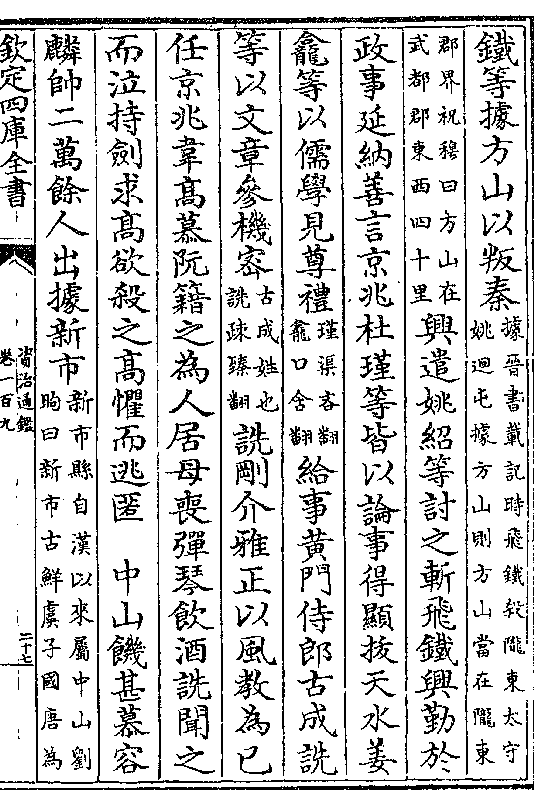 鐵等據方山以叛秦據晉書載記時飛鐵殺隴東太守姚迴屯據方山則方山當在隴東
郡界祝穆曰方山在武都郡東西四十里興遣姚紹等討之斬飛鐵興勤於
政事延納善言京兆杜瑾等皆以論事得顯拔天水姜
龕等以儒學見尊禮瑾渠吝翻龕口含翻給事黄門侍郎古成詵
等以文章參機宻古成姓也詵疎臻翻詵剛介雅正以風教為已
任京兆韋髙慕阮籍之為人居母喪彈琴飲酒詵聞之
而泣持劍求髙欲殺之髙懼而逃匿　中山饑甚慕容
麟帥二萬餘人出據新市新市縣自漢以來屬中山劉昫曰新市古鮮虞子國唐為
欽定四庫全書
資治通鑑
卷一百九
二十七